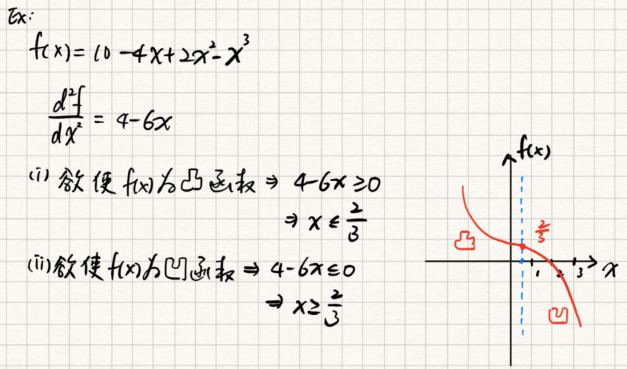 Ex:
f(x) = 10 - 4x + 2x² - x³
d²f/dx² = 4 - 6x
(i) 欲使 f(x)为凸函数 ⇒ 4-6x ≥ 0
⇒ x ≤ 2/3
(ii) 欲使 f(x)为凹函数 ⇒ 4-6x ≤ 0
⇒ x ≥ 2/3
f(x)
2/3
凸
1 2 3 x
凹